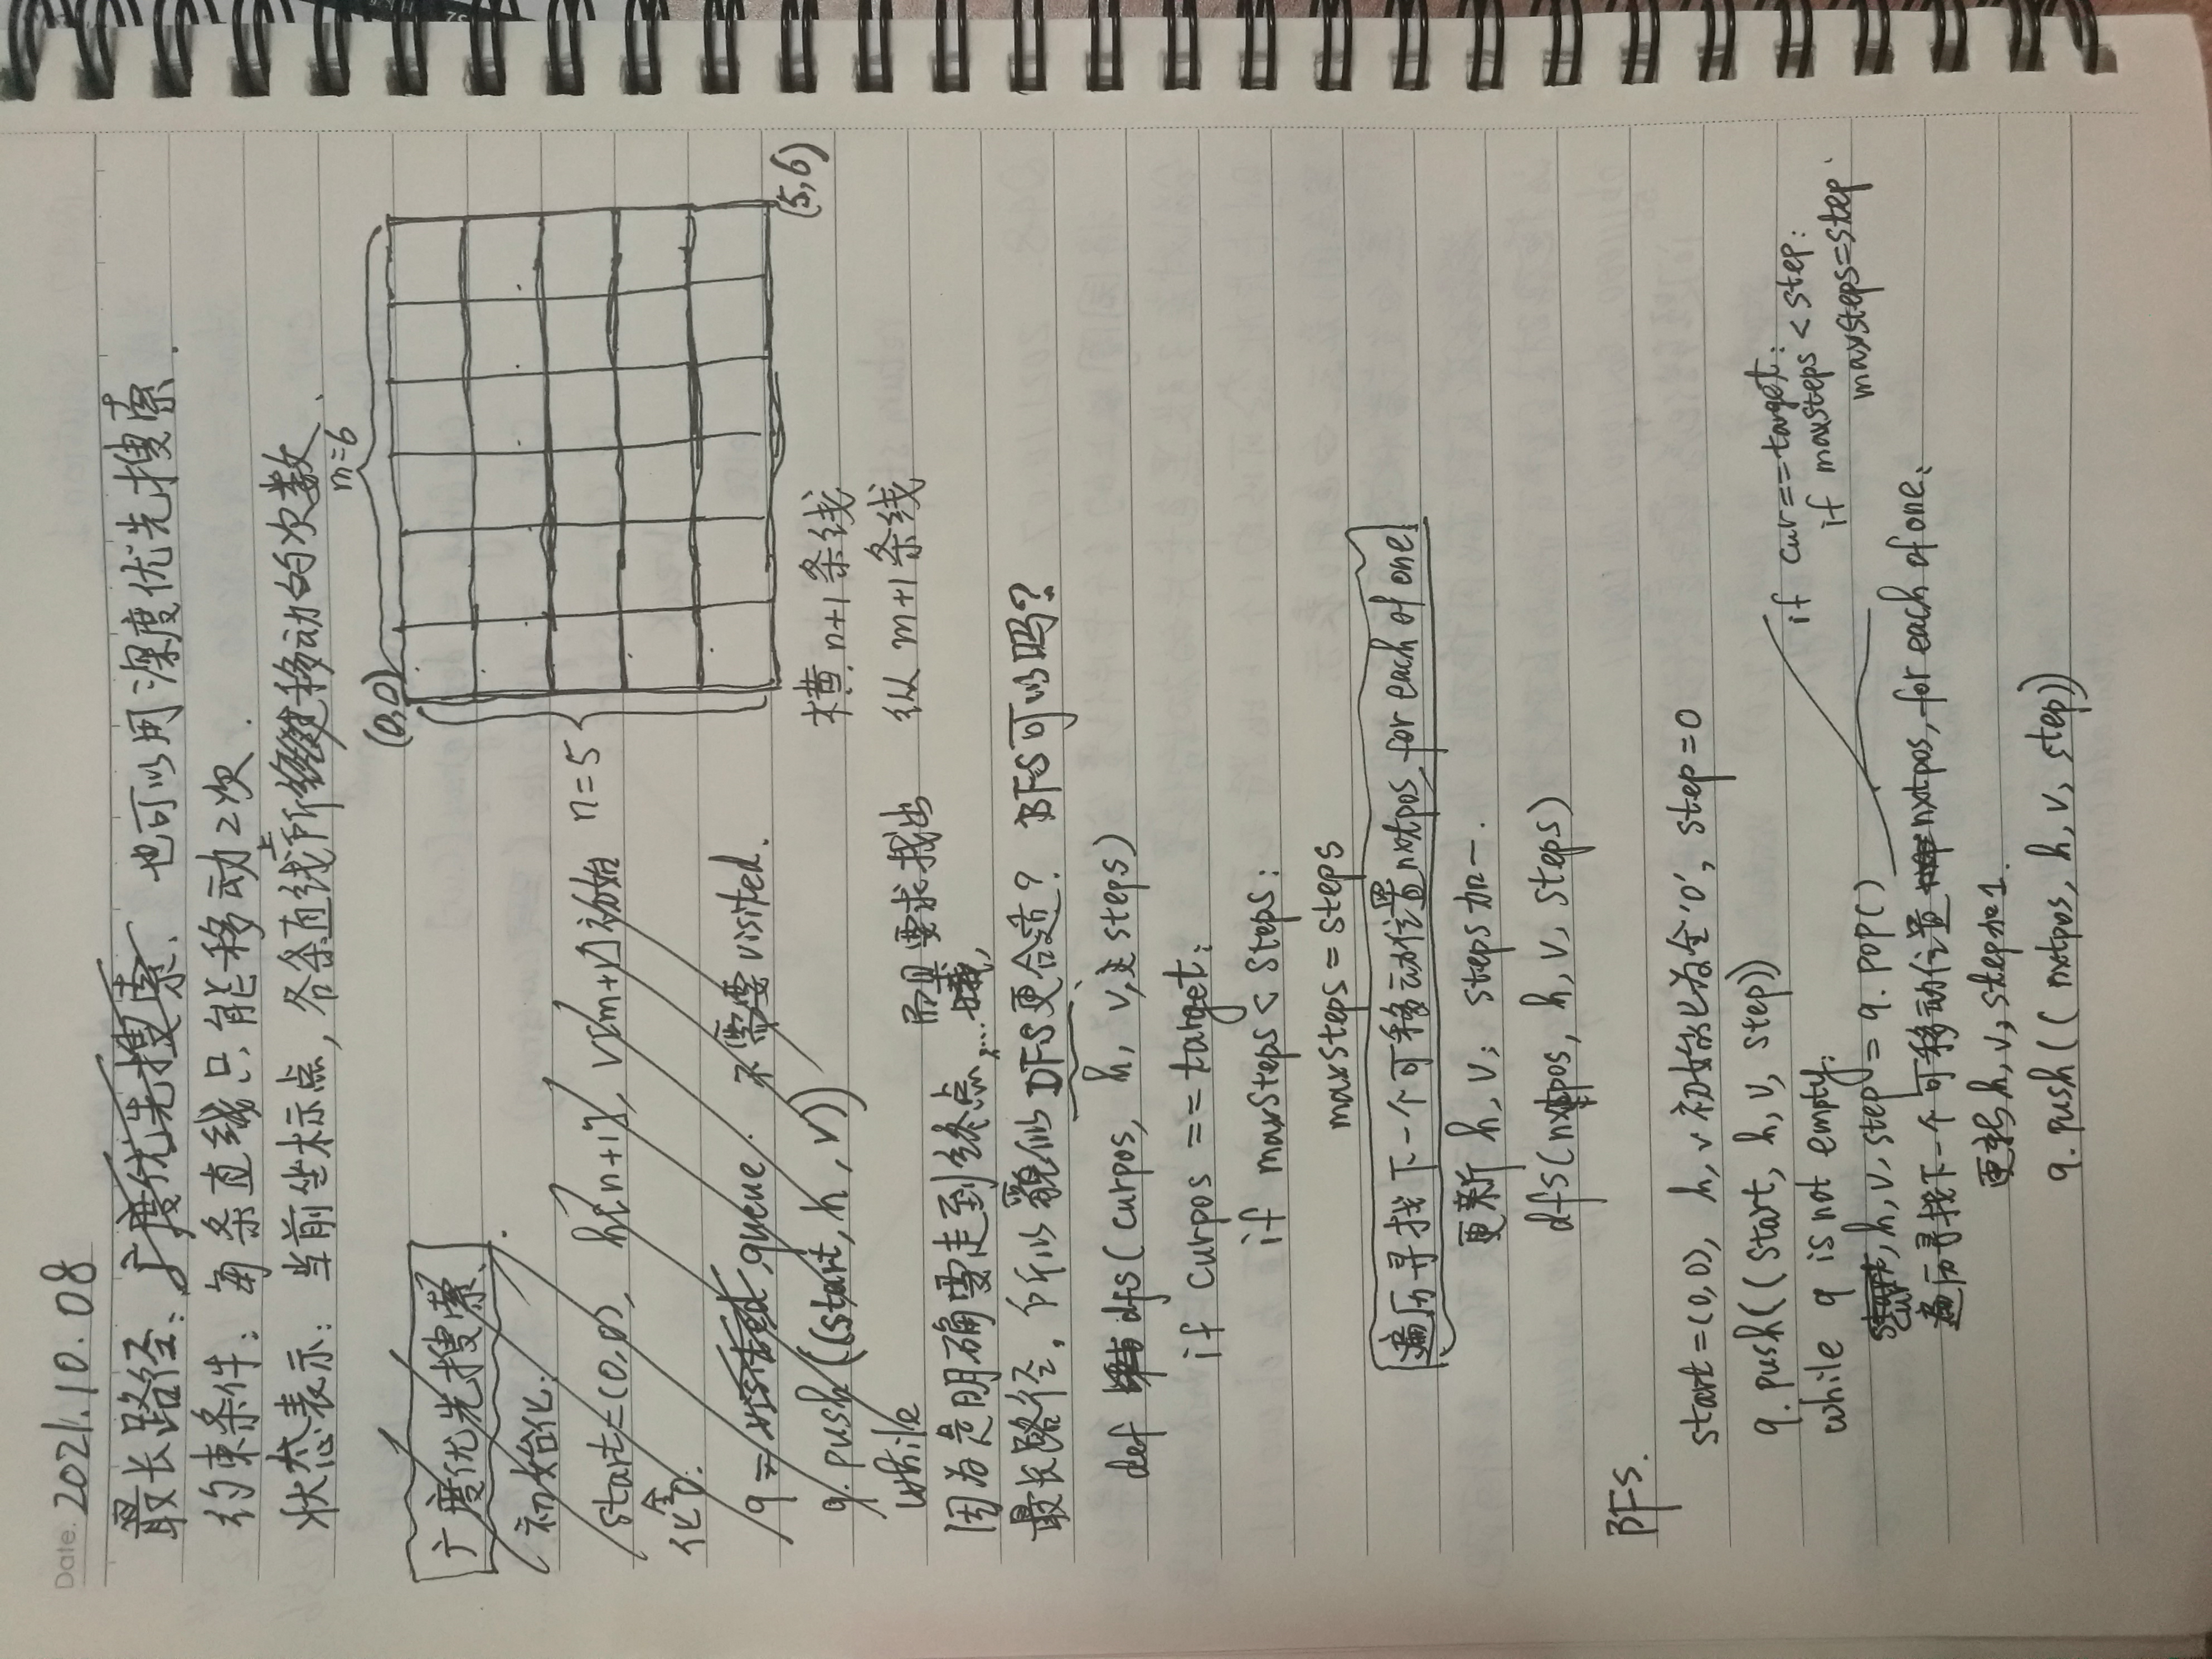 Date. 2021.10.08
最长路径: 广度优先搜索. 也可以用深度优先搜索.
约束条件: 每条直线只能移动2次.
状态表示: 当前坐标点, 各条直线上所移动的次数.
m=6
(0,0)
广度优先搜索.
初始化:
start=(0,0), h[n+1], v[m+1]初始
n=5
化全0.
q = visited queue. 不需要visited.
(5,6)
q.push((start, h, v))
横 n+1条线
while
纵 m+1条线
而且要求找出
因为是明确要走到终点,...
最长路径, 所以貌似DFS更合适? BFS可以吗?
def dfs(curpos, h, v, steps)
if curpos == target:
if maxsteps < steps:
maxsteps = steps
遍历寻找下一个可移动位置nxtpos, for each of one
更新 h, v; steps加一.
dfs(nxtpos, h, v, steps)
BFS.
start=(0,0), h, v初始化为全'0', step=0
q.push((start, h, v, step))
while q is not empty:
if cur==target:
if maxsteps < step:
maxsteps=step
start, h, v, step = q.pop()
cur
遍历寻找下一个可移动位置 nxtpos, for each of one:
更新h, v, step加1.
q.push((nxtpos, h, v, step))